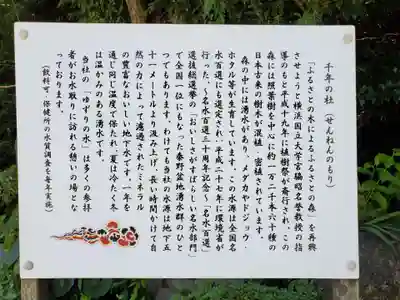 千年の杜（せんねんのもり）
「ふるさとの木によるふるさとの森」を再興
させようと横浜国立大学宮脇昭名誉教授の指
導のもと平成十九年に植樹祭が斎行され、この
森には照葉樹を中心に約一万二千本六十種の
日本古来の樹木が混植・密植されています。
森の中には湧水があり、メダカやドジョウ・
ホタル等が生育しています。この水源は全国名
水百選にも選定され、平成二十七年に環境省が
行った、〜名水百選三十周年記念〜「名水百選」
選抜総選挙の「おいしさがすばらしい名水部門」
で全国一位にもなった秦野盆地湧水群のひと
つでもあります。わけても当社の水源は地下五
十一メートルより汲み上げ、長い時間かけて自
然の力によって濾過されたミネラル
の豊富なおいしい地下水です。一年を
通じ同じ温度で保たれ、夏は冷たく冬
は温かみのある湧水です。
当社の「ゆずりの水」は多くの参拝
者がお水取りに訪れる憩いの場とな
っております。
（飲料可・保健所の水質調査を毎年実施）